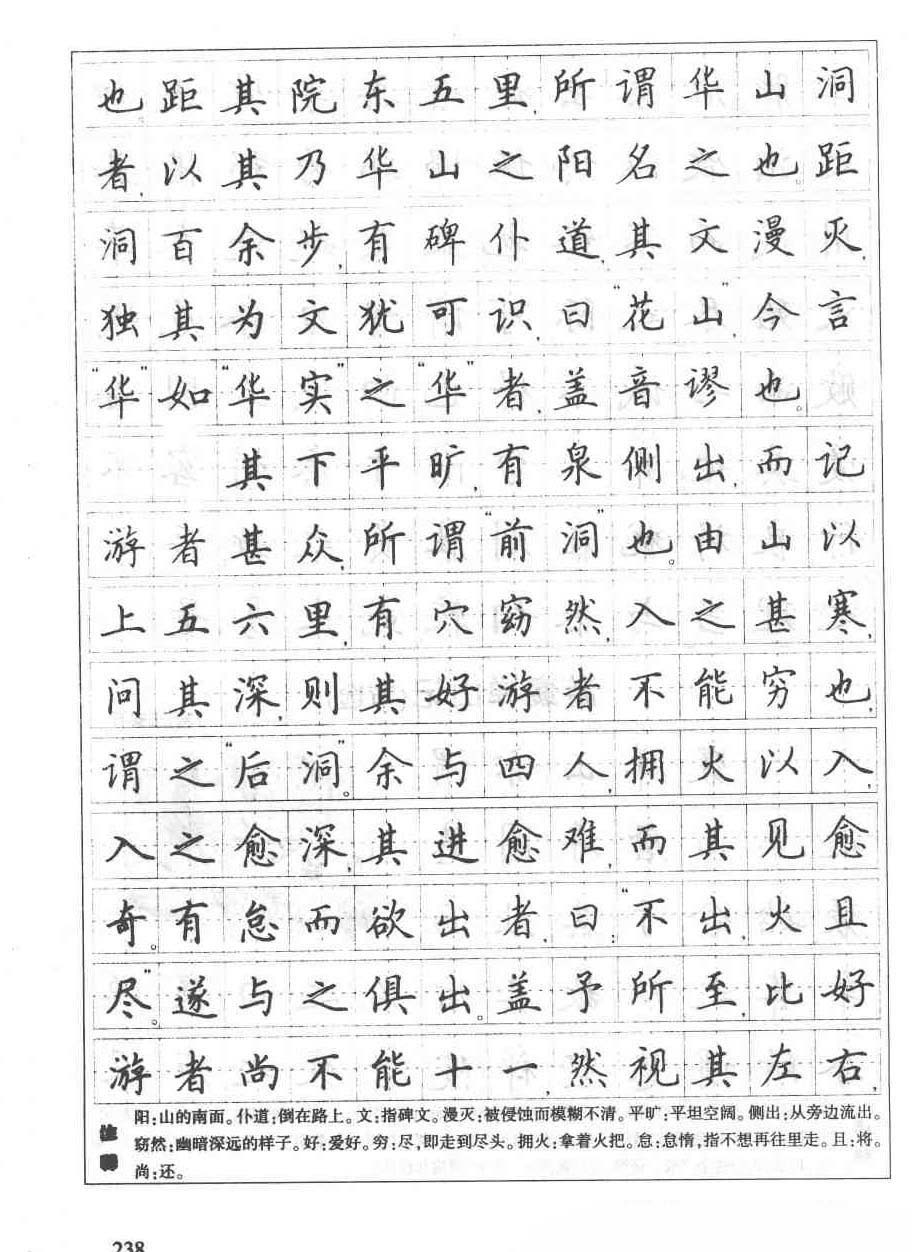 也距其院东五里,所谓华山洞
者,以其乃华山之阳名之也。距
洞百余步,有碑仆道,其文漫灭,
独其为文犹可识,曰“花山”,今言
“华”如“华实”之“华”者,盖音谬也。
其下平旷,有泉侧出,而记
游者甚众,所谓“前洞”也。由山以
上五六里,有穴窈然,入之甚寒,
问其深,则其好游者不能穷也,
谓之“后洞”。余与四人拥火以入,
入之愈深,其进愈难,而其见愈
奇。有怠而欲出者,曰:“不出,火且
尽。”遂与之俱出。盖予所至,比好
游者尚不能十一,然视其左右,
阳:山的南面。仆道:倒在路上。文:指碑文。漫灭:被侵蚀而模糊不清。平旷:平坦空阔。侧出:从旁边流出。
窈然:幽暗深远的样子。好:爱好。穷:尽,即走到尽头。拥火:拿着火把。怠:怠惰,指不想再往里走。且:将。
尚:还。
238